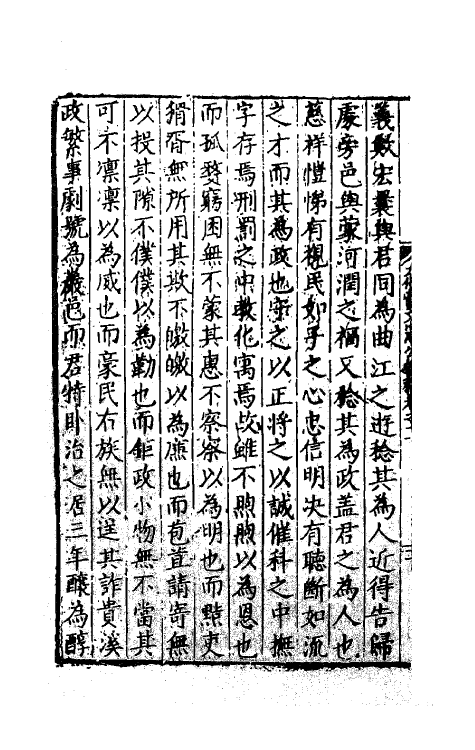 義數宏曩與君同為曲江之遊稔其為人近得告歸
處旁邑與蒙河潤之福又稔其為政盖君之為人也
慈祥愷悌有視民如子之心忠信明决有聽斷如流
之才而其為政也守之以正將之以誠催科之中撫
字存焉刑罰之中教化寓焉故雖不煦煦以為恩也
而孤嫠窮困無不蒙其惠不察察以為明也而黠吏
猾胥無所用其欺不皦皦以為廉也而苞苴請寄無
以投其隙不僕僕以為勤也而鉅政小物無不當其
可不凛凛以為威也而豪民右族無以逞其詐貴溪
政繁事劇號為嚴邑而君特卧治之居三年醲為醇